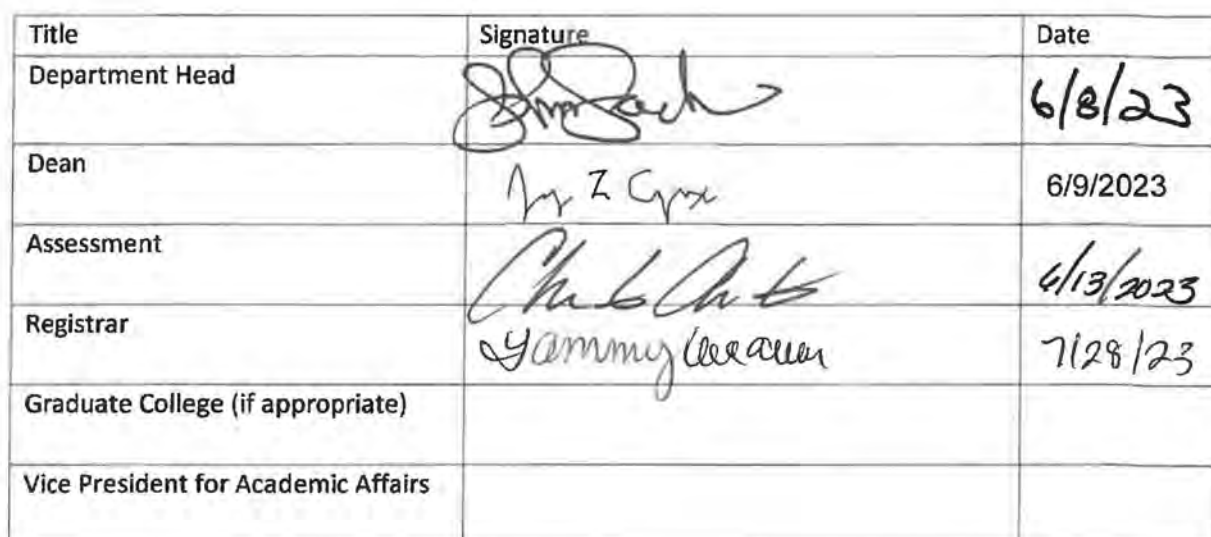 Title Signature Date
Department Head 6/8/23
Dean 6/9/2023
Assessment 6/13/2023
Registrar Tammy 7/28/23
Graduate College (if appropriate)
Vice President for Academic Affairs